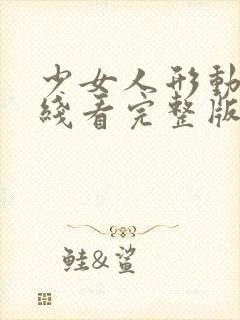 少女人形動
綫看完整版
鮭&鯊